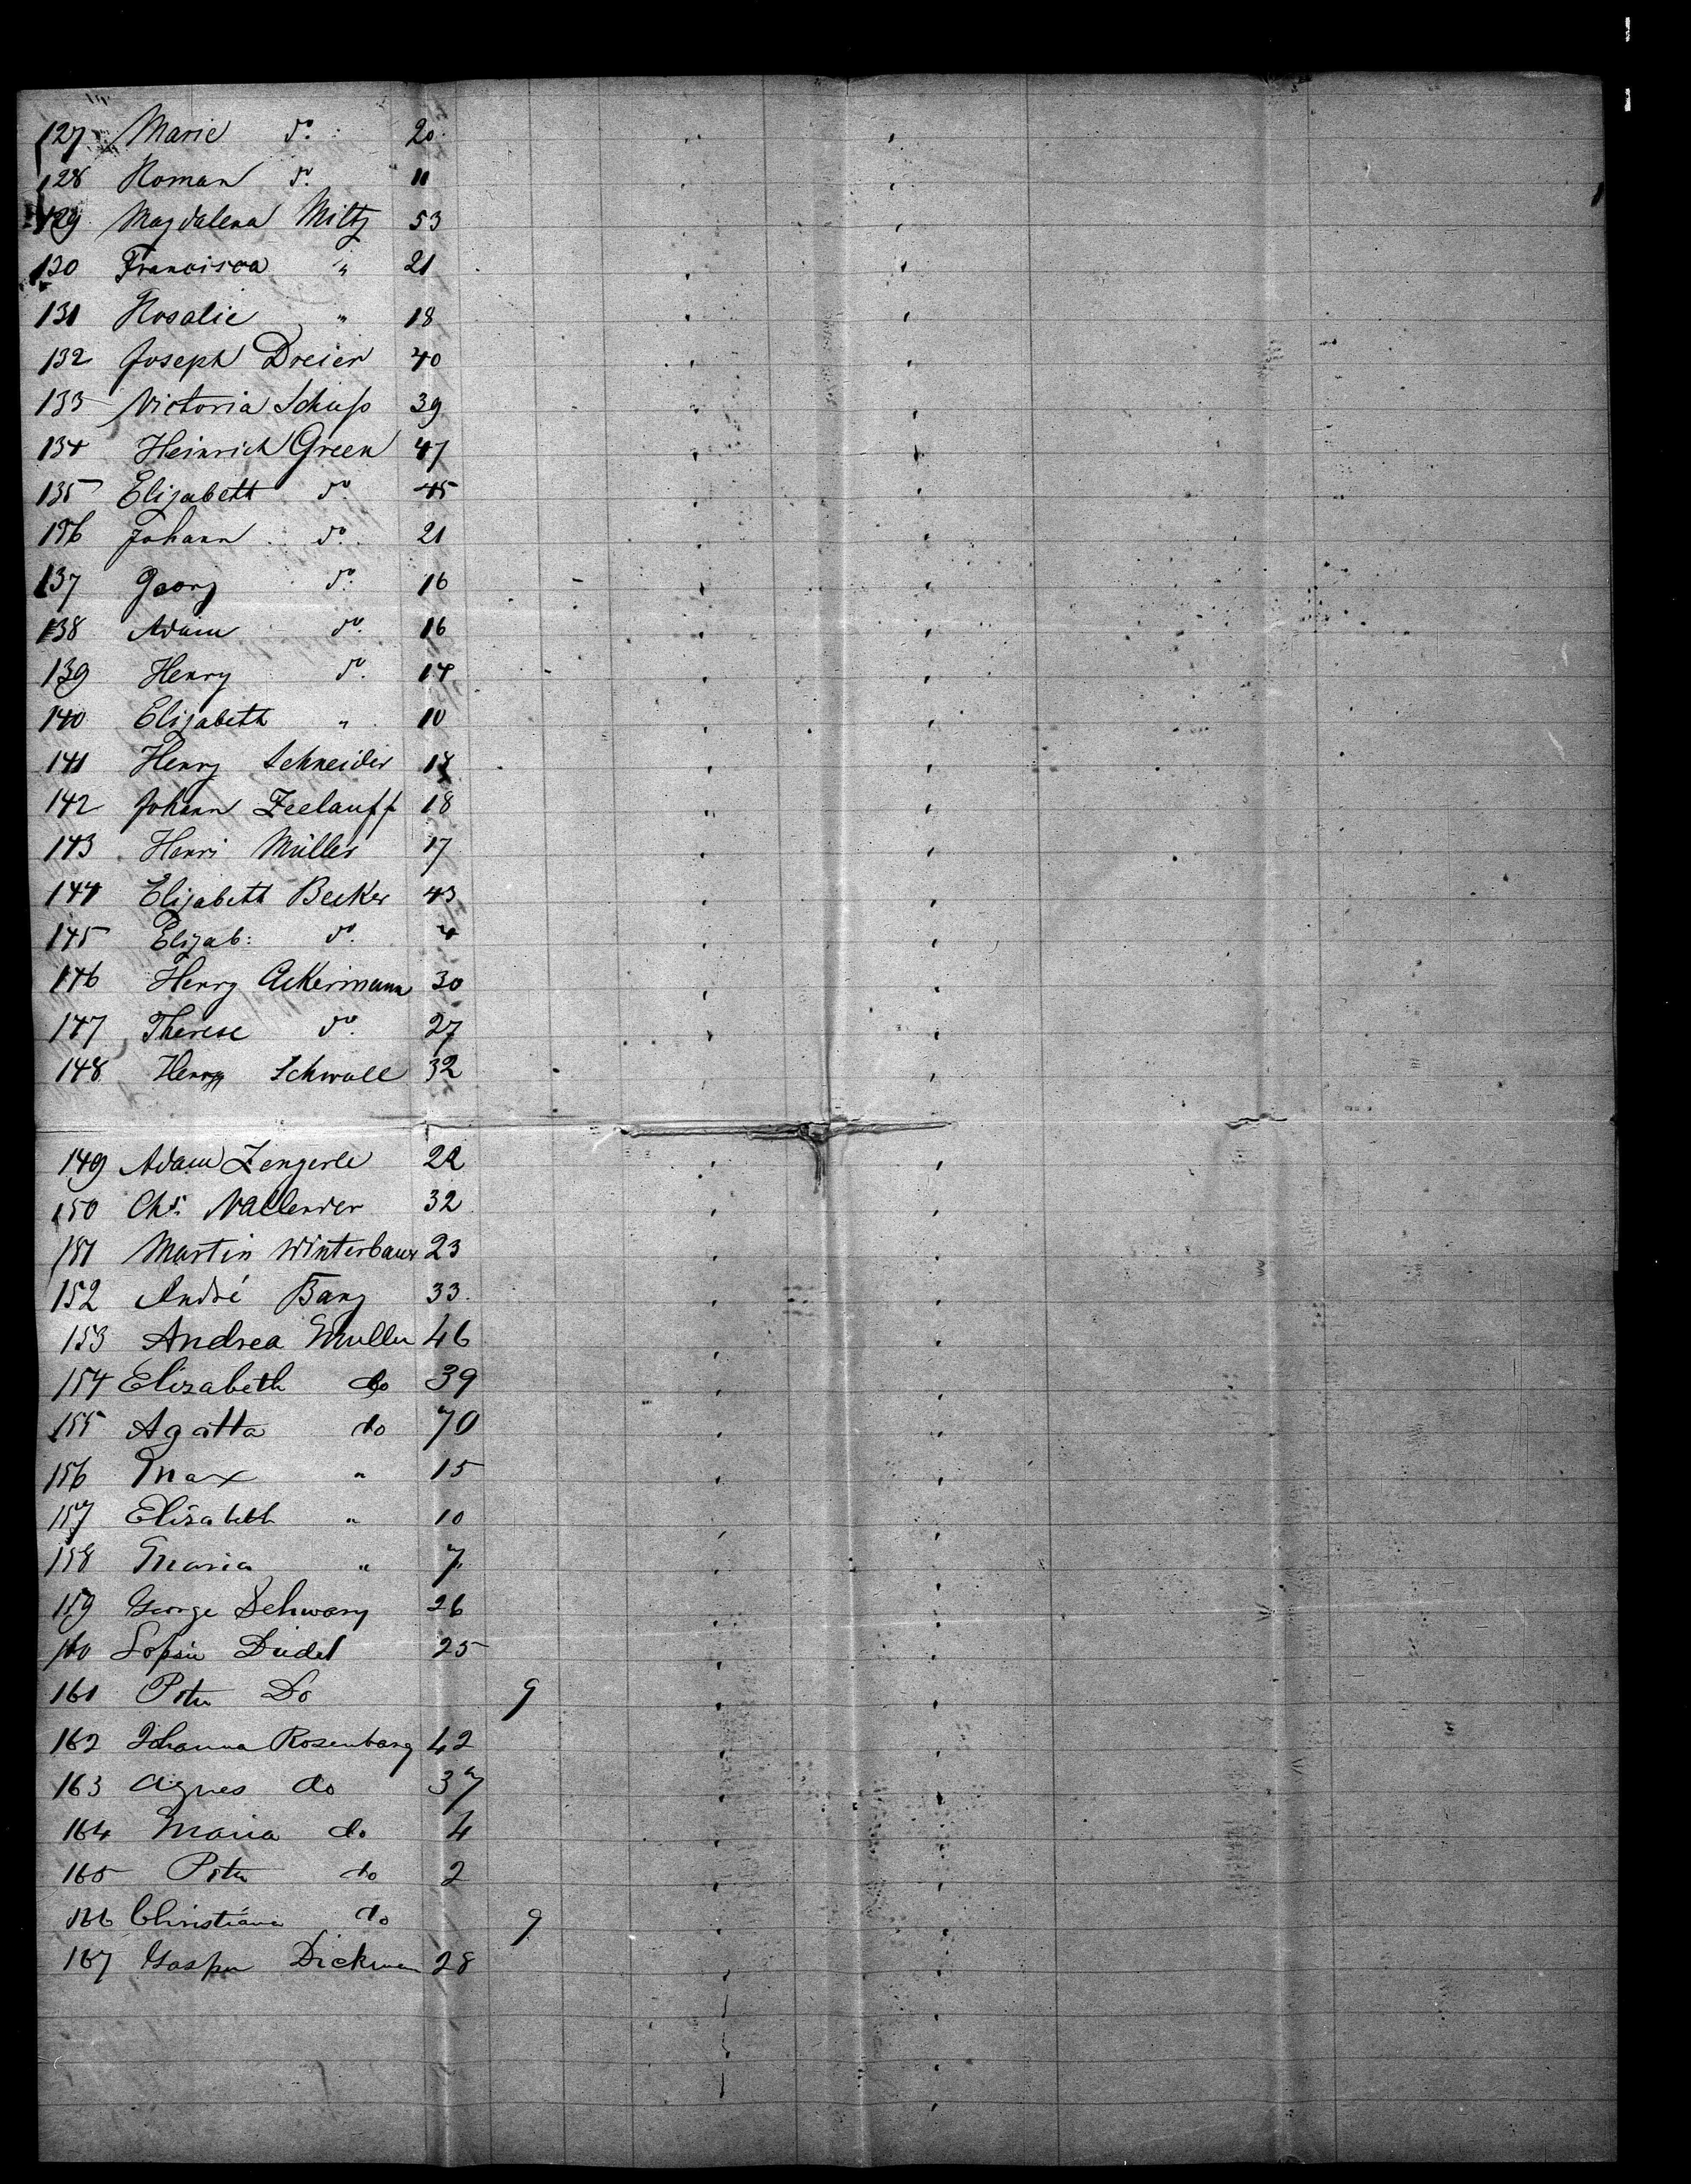 127 Marie do. 20
128 Roman do. 11
129 Magdalena Miltz 53
130 Francisca " 21
131 Rosalie " 18
132 Joseph Dreier 40
133 Victoria Schuss 39
134 Heinrich Green 47
135 Elizabeth do. 45
136 Johann do. 21
137 Georg do. 16
138 Adam do. 16
139 Henry do. 14
140 Elizabeth " 10
141 Henry Schneider 18
142 Johann Zeelauff 18
143 Henri Müller 17
144 Elizabeth Becker 43
145 Elizab: do.
146 Henry Ackermann 30
147 Therese do. 27
148 Henry Schwall 32
149 Adam Zengerle 22
150 Chs. Nallender 32
151 Martin Winterbauer 23
152 André Bang 33.
153 Andrea Muller 46
154 Elizabeth do 39
155 Agatta do 70
156 Max " 15
157 Elisabeth " 10
158 Maria " 7
159 George Schwarz 26
160 Sophie Deidel 25
161 Peter Do 9
162 Johanna Rosenbarg 42
163 Agnes do 37
164 Maria do 4
165 Peter do 2
166 Christiana do 9
167 Gasper Dickman 28